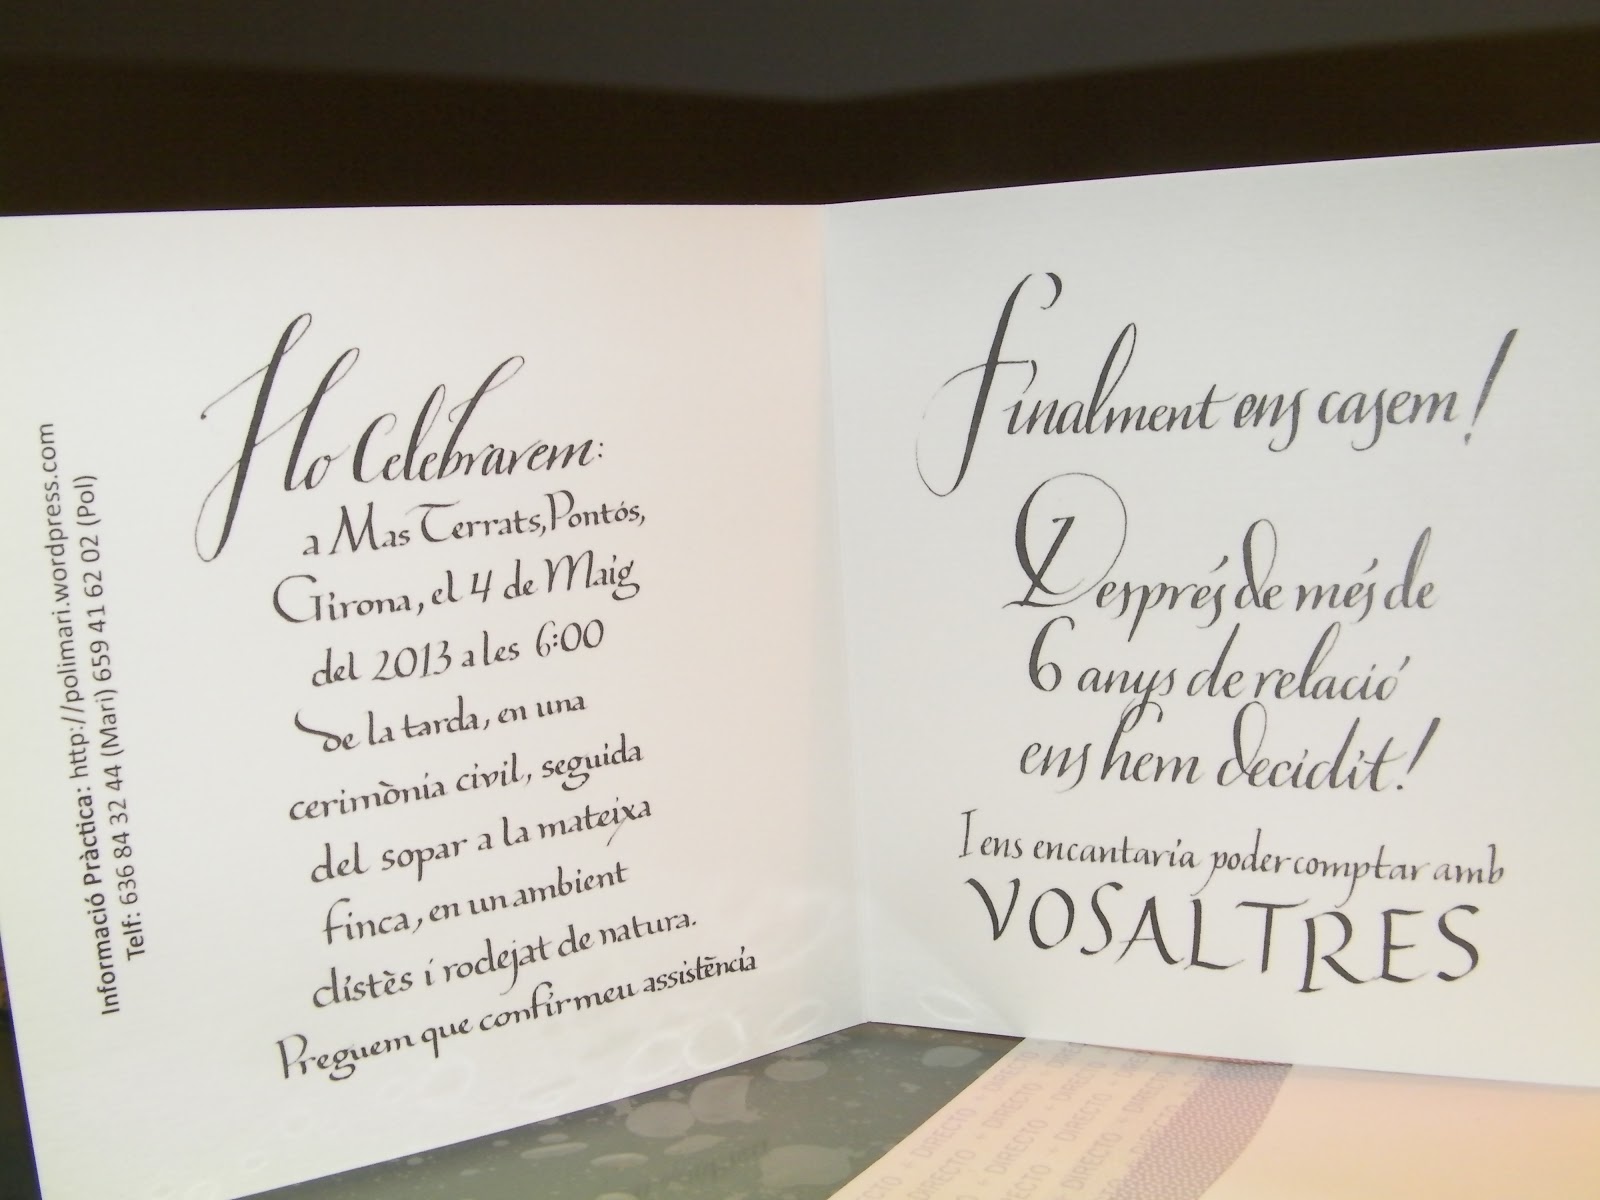 Informació Pràctica: http://polimari.wordpress.com
Telf: 636 84 32 44 (Mari) 659 41 62 02 (Pol)
Ho Celebrarem:
a Mas Terrats, Pontós,
Girona, el 4 de Maig
del 2013 a les 6:00
de la tarda, en una
cerimònia civil, seguida
del sopar a la mateixa
finca, en un ambient
distès i rodejat de natura.
Preguem que confirmeu assistència
Finalment ens casem!
Després de més de
6 anys de relació
ens hem decidit!
I ens encantaria poder comptar amb
VOSALTRES
DIRECTO + DIRECTO + DIRECTO + DIRECTO